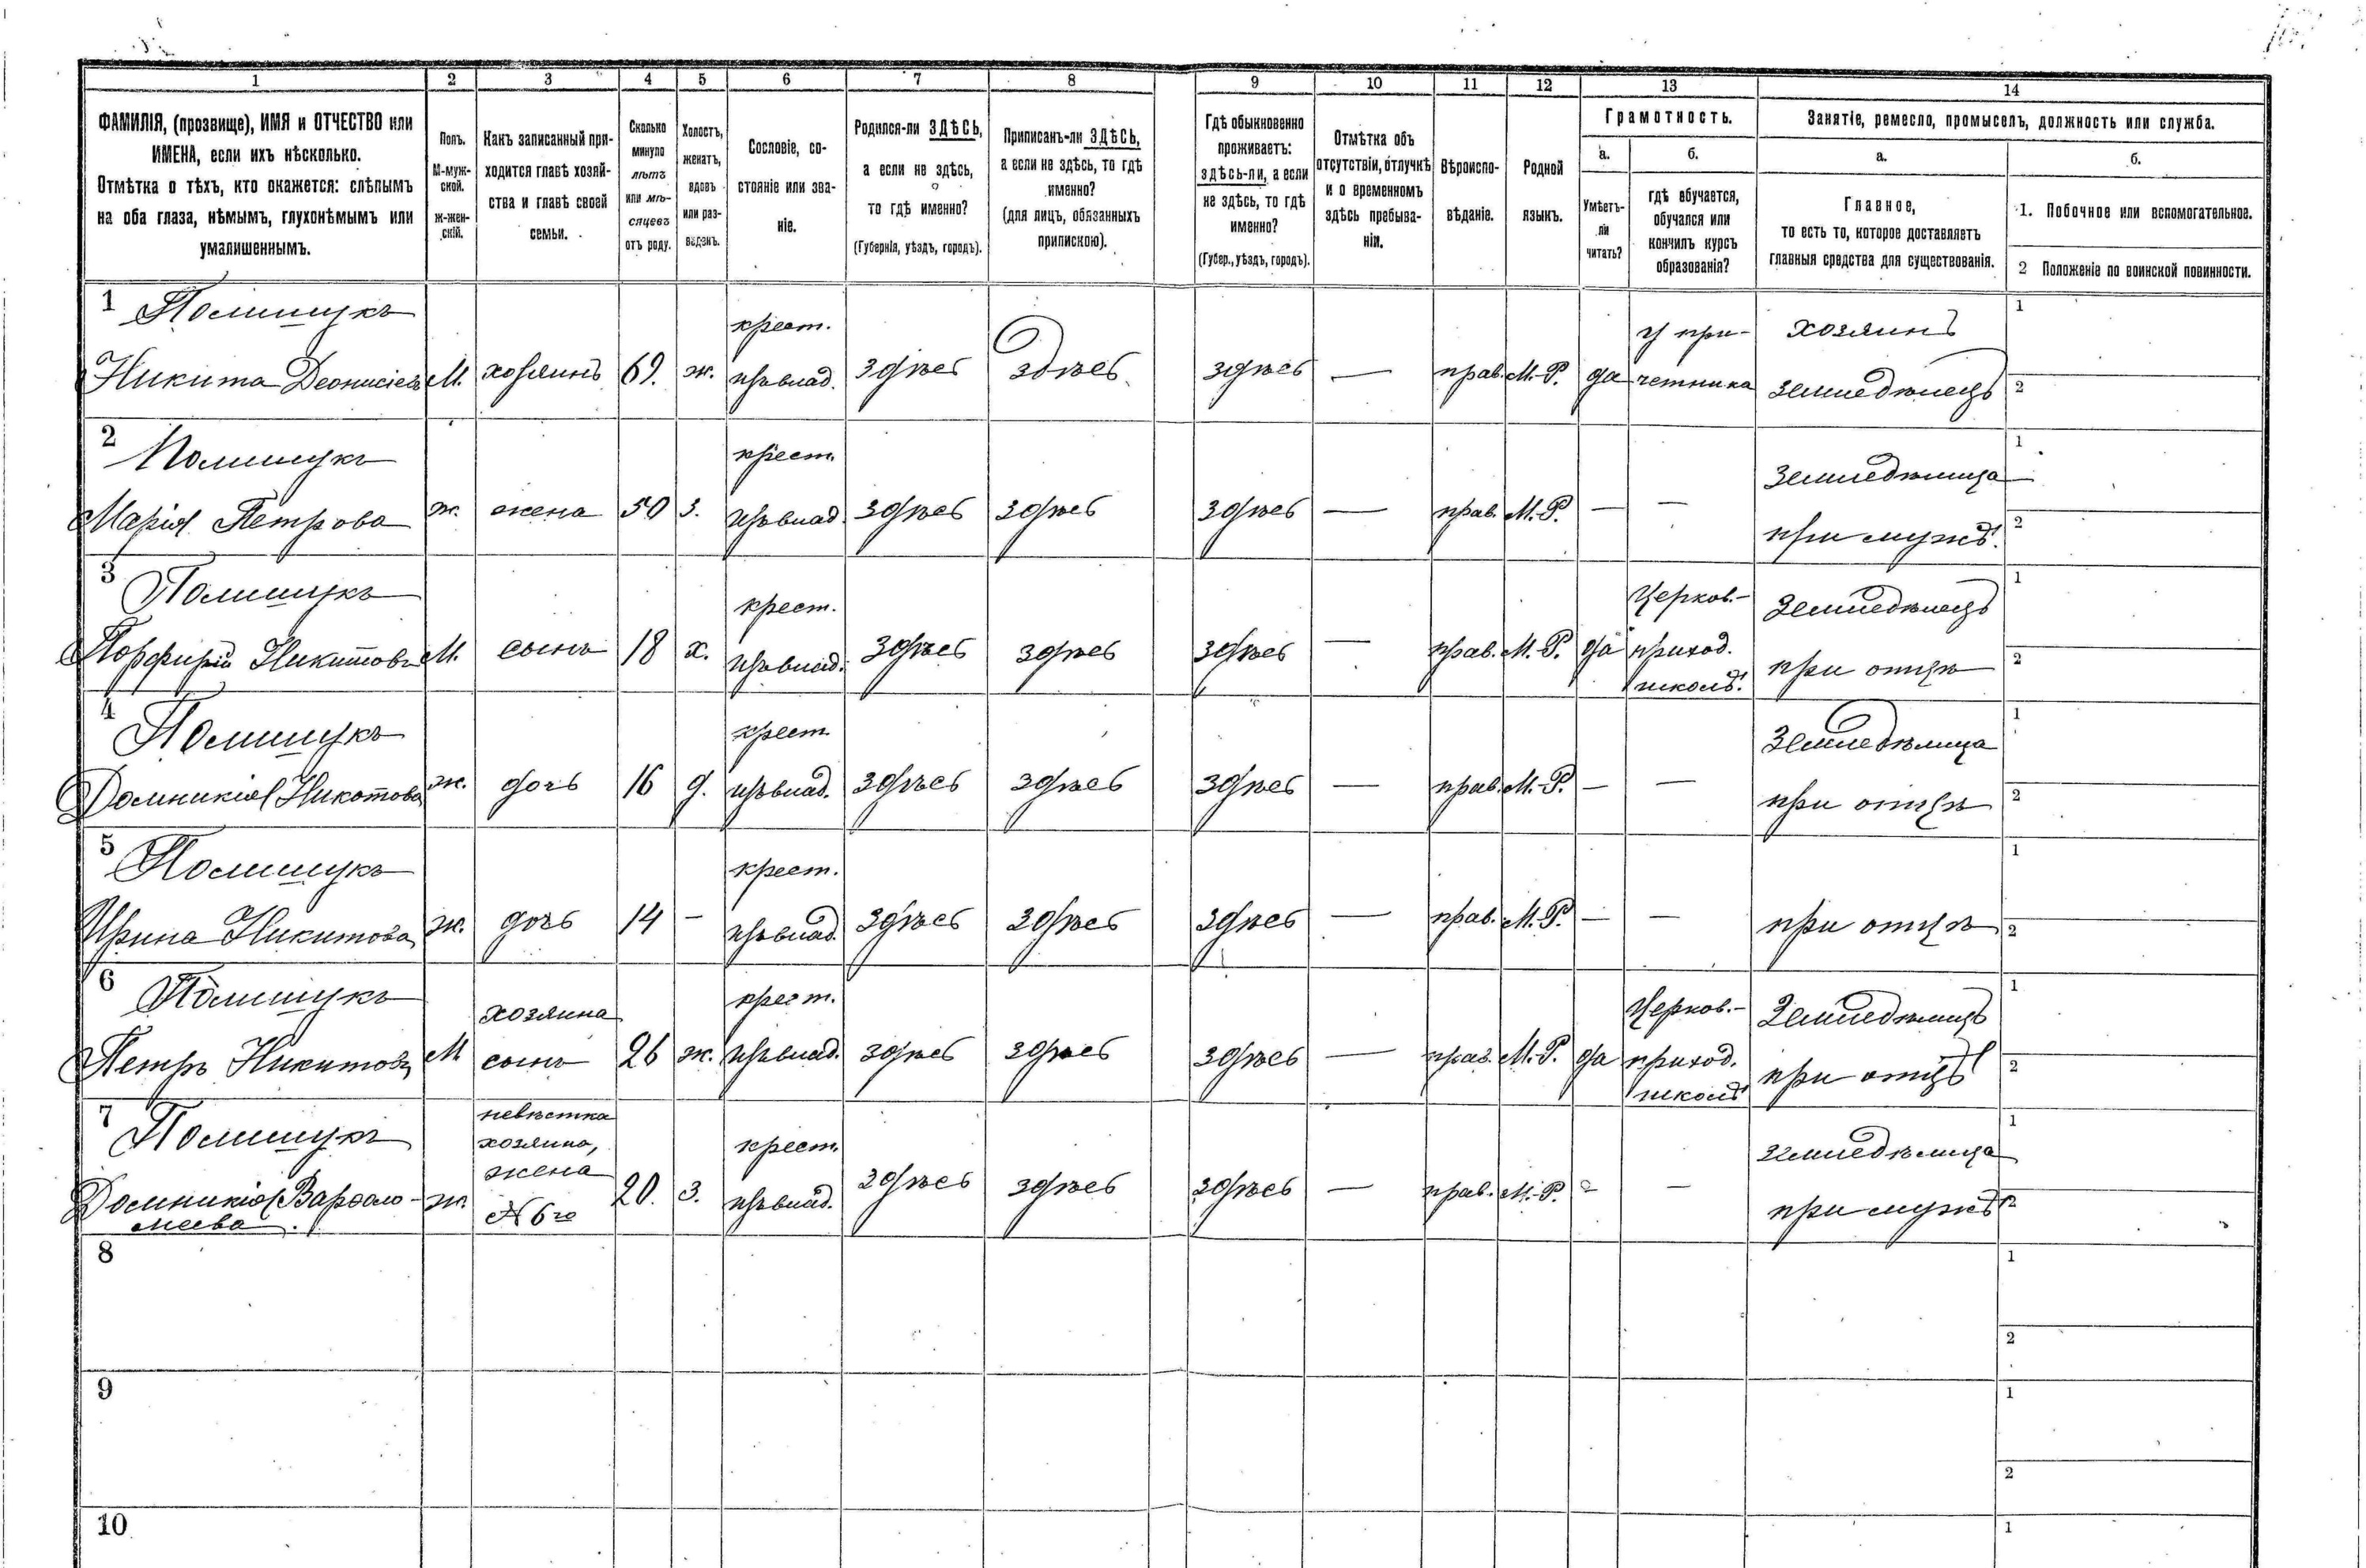 1 2 3 4 5 6 7 8 9 10 11 12 13 14
ФАМИЛІЯ, (прозвище), ИМЯ и ОТЧЕСТВО или
ИМЕНА, если ихъ нѣсколько.
Отмѣтка о тѣхъ, кто окажется: слѣпымъ
на оба глаза, нѣмымъ, глухонѣмымъ или
умалишеннымъ.
Полъ.
М-муж-
ской.
Ж-жен-
скій.
Какъ записанный при-
ходится главѣ хозяй-
ства и главѣ своей
семьи.
Сколько
минуло
лѣтъ
или мѣ-
сяцевъ
отъ роду.
Холостъ,
женатъ,
вдовъ
или раз-
веденъ.
Сословіе, со-
стояніе или зва-
ніе.
Родился-ли ЗДѢСЬ,
а если не здѣсь,
то гдѣ именно?
(Губернія, уѣздъ, городъ).
Приписанъ-ли ЗДѢСЬ,
а если не здѣсь, то гдѣ
именно?
(для лицъ, обязанныхъ
припискою).
Гдѣ обыкновенно
проживаетъ:
здѣсь-ли, а если
не здѣсь, то гдѣ
именно?
(Губер., уѣздъ, городъ).
Отмѣтка объ
отсутствіи, отлучкѣ
и о временномъ
здѣсь пребыва-
ніи.
Вѣроиспо-
вѣданіе.
Родной
языкъ.
Грамотность.
а.
Умѣетъ-
ли
читать?
б.
гдѣ обучается,
обучался или
кончилъ курсъ
образованія?
Занятіе, ремесло, промыселъ, должность или служба.
а.
Главное,
то есть то, которое доставляетъ
главныя средства для существованія.
б.
1. Побочное или вспомогательное.
2 Положеніе по воинской повинности.
1 Полищукъ крест. у при- хозяинъ 1
Никита Деонисіевъ М. хозяинъ 69. ж. здѣсь здѣсь здѣсь — прав. М.-Р. да четника земледѣлецъ 2
2 Полищукъ крест. земледѣлица 1
Марія Петрова ж. жена 50 з. здѣсь здѣсь здѣсь — прав. М.-Р. — — при мужѣ. 2
3 Полищукъ крест. Церков.- земледѣлецъ 1
Порфирій Никитовъ М. сынъ 18 х. здѣсь здѣсь здѣсь — прав. М.-Р. да приход. при отцѣ 2
школѣ.
4 Полищукъ крест. земледѣлица 1
Домникія Никотова ж. дочь 16 д. здѣсь здѣсь здѣсь — прав. М.-Р. — — при отцѣ 2
5 Полищукъ крест. 1
Ирина Никитова ж. дочь 14 – здѣсь здѣсь здѣсь — прав. М.-Р. — — при отцѣ 2
6 Полищукъ хозяина крест. Церков.- Земледѣлецъ 1
Петръ Никитовъ М сынъ 26 ж. здѣсь здѣсь здѣсь — прав. М.-Р. да приход. при отцѣ 2
школѣ
7 Полищукъ невѣстка
хозяина, крест. земледѣлица 1
жена
Домникія Варфоло- ж. №6го 20. з. здѣсь здѣсь здѣсь — прав. М.-Р. - — при мужѣ 2
меева.
8 1
2
9 1
2
10 1